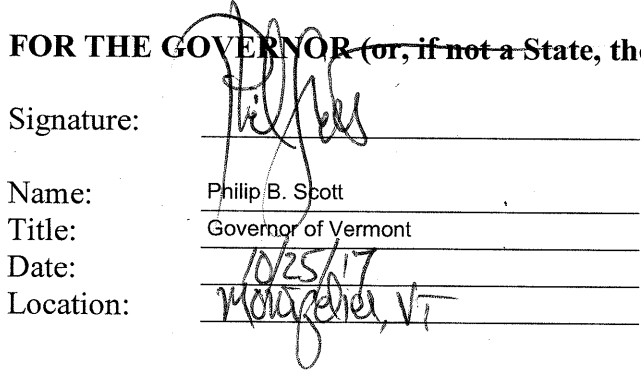 FOR THE GOVERNOR (or, if not a State, the
Signature: Phil Scott
Name: Philip B. Scott
Title: Governor of Vermont
Date: 10/25/17
Location: Montpelier, VT